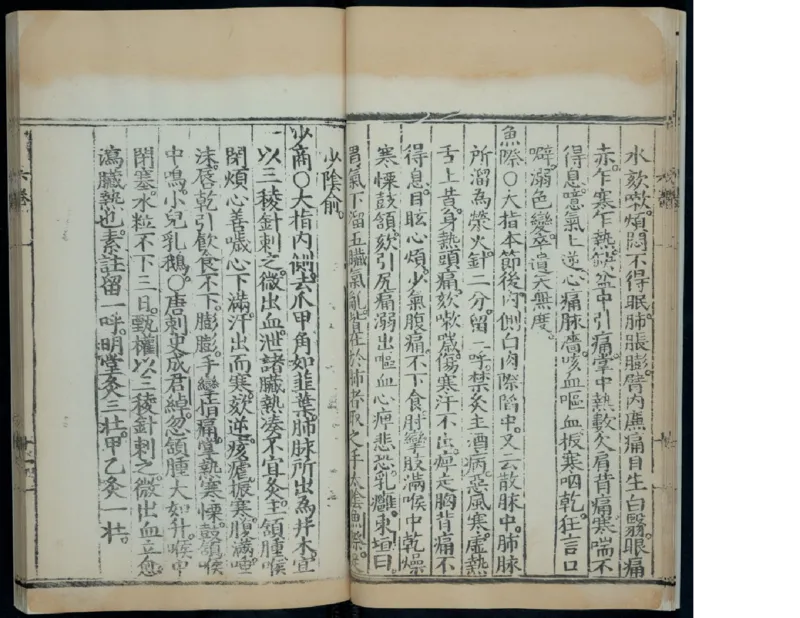 水欬嗽煩悶不得眠肺脹膨臂内廉痛目生白翳眼痛
赤乍寒乍熱缺盆中引痛掌中熱數欠肩背痛寒喘不
得息噫氣上逆心痛脉濇咳血嘔血振寒咽乾狂言口
噼溺色變卒遺矢無度
魚際〇大指本節後内側白肉際陷中又云散脉中肺脉
所溜為滎火針二分留二呼禁灸主酒病惡風寒虛熱
舌上黃身熱頭痛欬嗽噦傷寒汗不出痺走胸背痛不
得息目眩心煩少氣腹痛不下食肘攣肢滿喉中乾燥
寒慄鼓頷欬引尻痛溺出嘔血心痺悲恐乳癰東垣曰
胃氣下溜五臟氣亂在於肺者取之手太陰魚際
少陰俞
少商〇大指内側去爪甲角如韭葉肺脉所出為井木宜
以三稜針刺之微出血泄諸臟熱凑不宜灸主頷腫喉
閉煩心善噦心下滿汗出而寒欬逆痎瘧振寒腹滿唾
沫唇乾引飲食不下膨膨手攣指痛掌熱寒慄鼓頷喉
中鳴小兒乳鵝〇唐刺史成君綽忽頷腫大如升喉中
閉塞水粒不下三日甄權以三稜針刺之微出血立愈
瀉臟熱也素註留一呼明堂灸三壯甲乙灸一壯